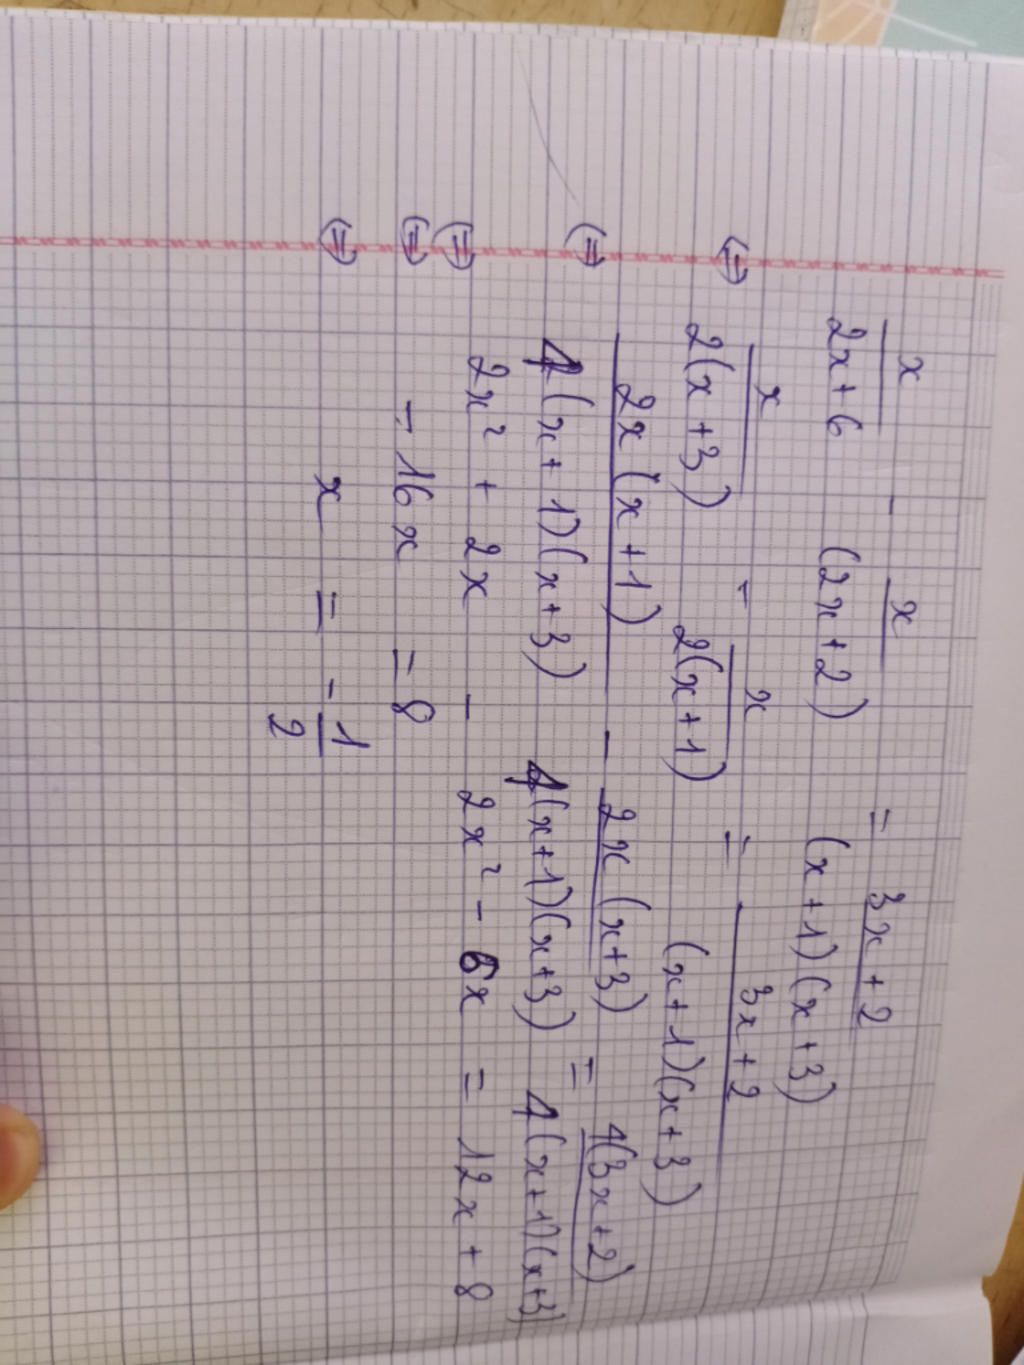 x/(2x+6) - x/(2x+2) = (3x+2)/((x+1)(x+3))
⇔ x/(2(x+3)) - x/(2(x+1)) = (3x+2)/((x+1)(x+3))
⇔ 2x(x+1)/(4(x+1)(x+3)) - 2x(x+3)/(4(x+1)(x+3)) = 4(3x+2)/(4(x+1)(x+3))
⇔ 2x² + 2x - 2x² - 6x = 12x + 8
⇔ -16x = 8
⇔ x = -1/2